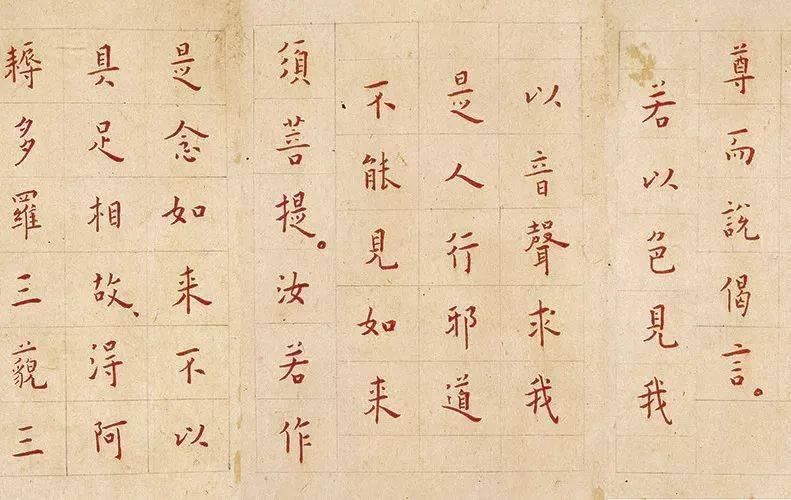 尊而説偈言。
若以色見我
以音聲求我
是人行邪道
不能見如来
須菩提。汝若作
是念如来不以
具足相故、得阿
耨多羅三藐三